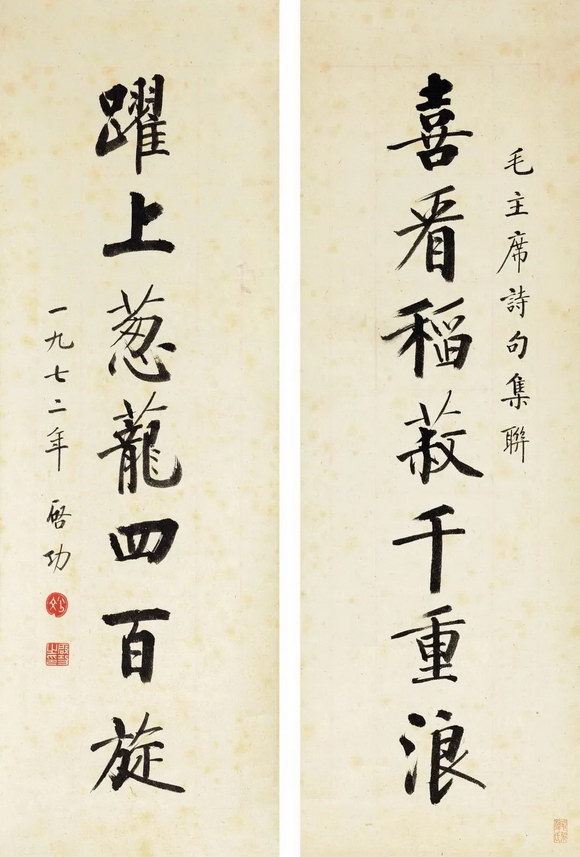 毛主席詩句集聯
喜看稻菽千重浪
躍上葱蘢四百旋
一九七二年 啓功